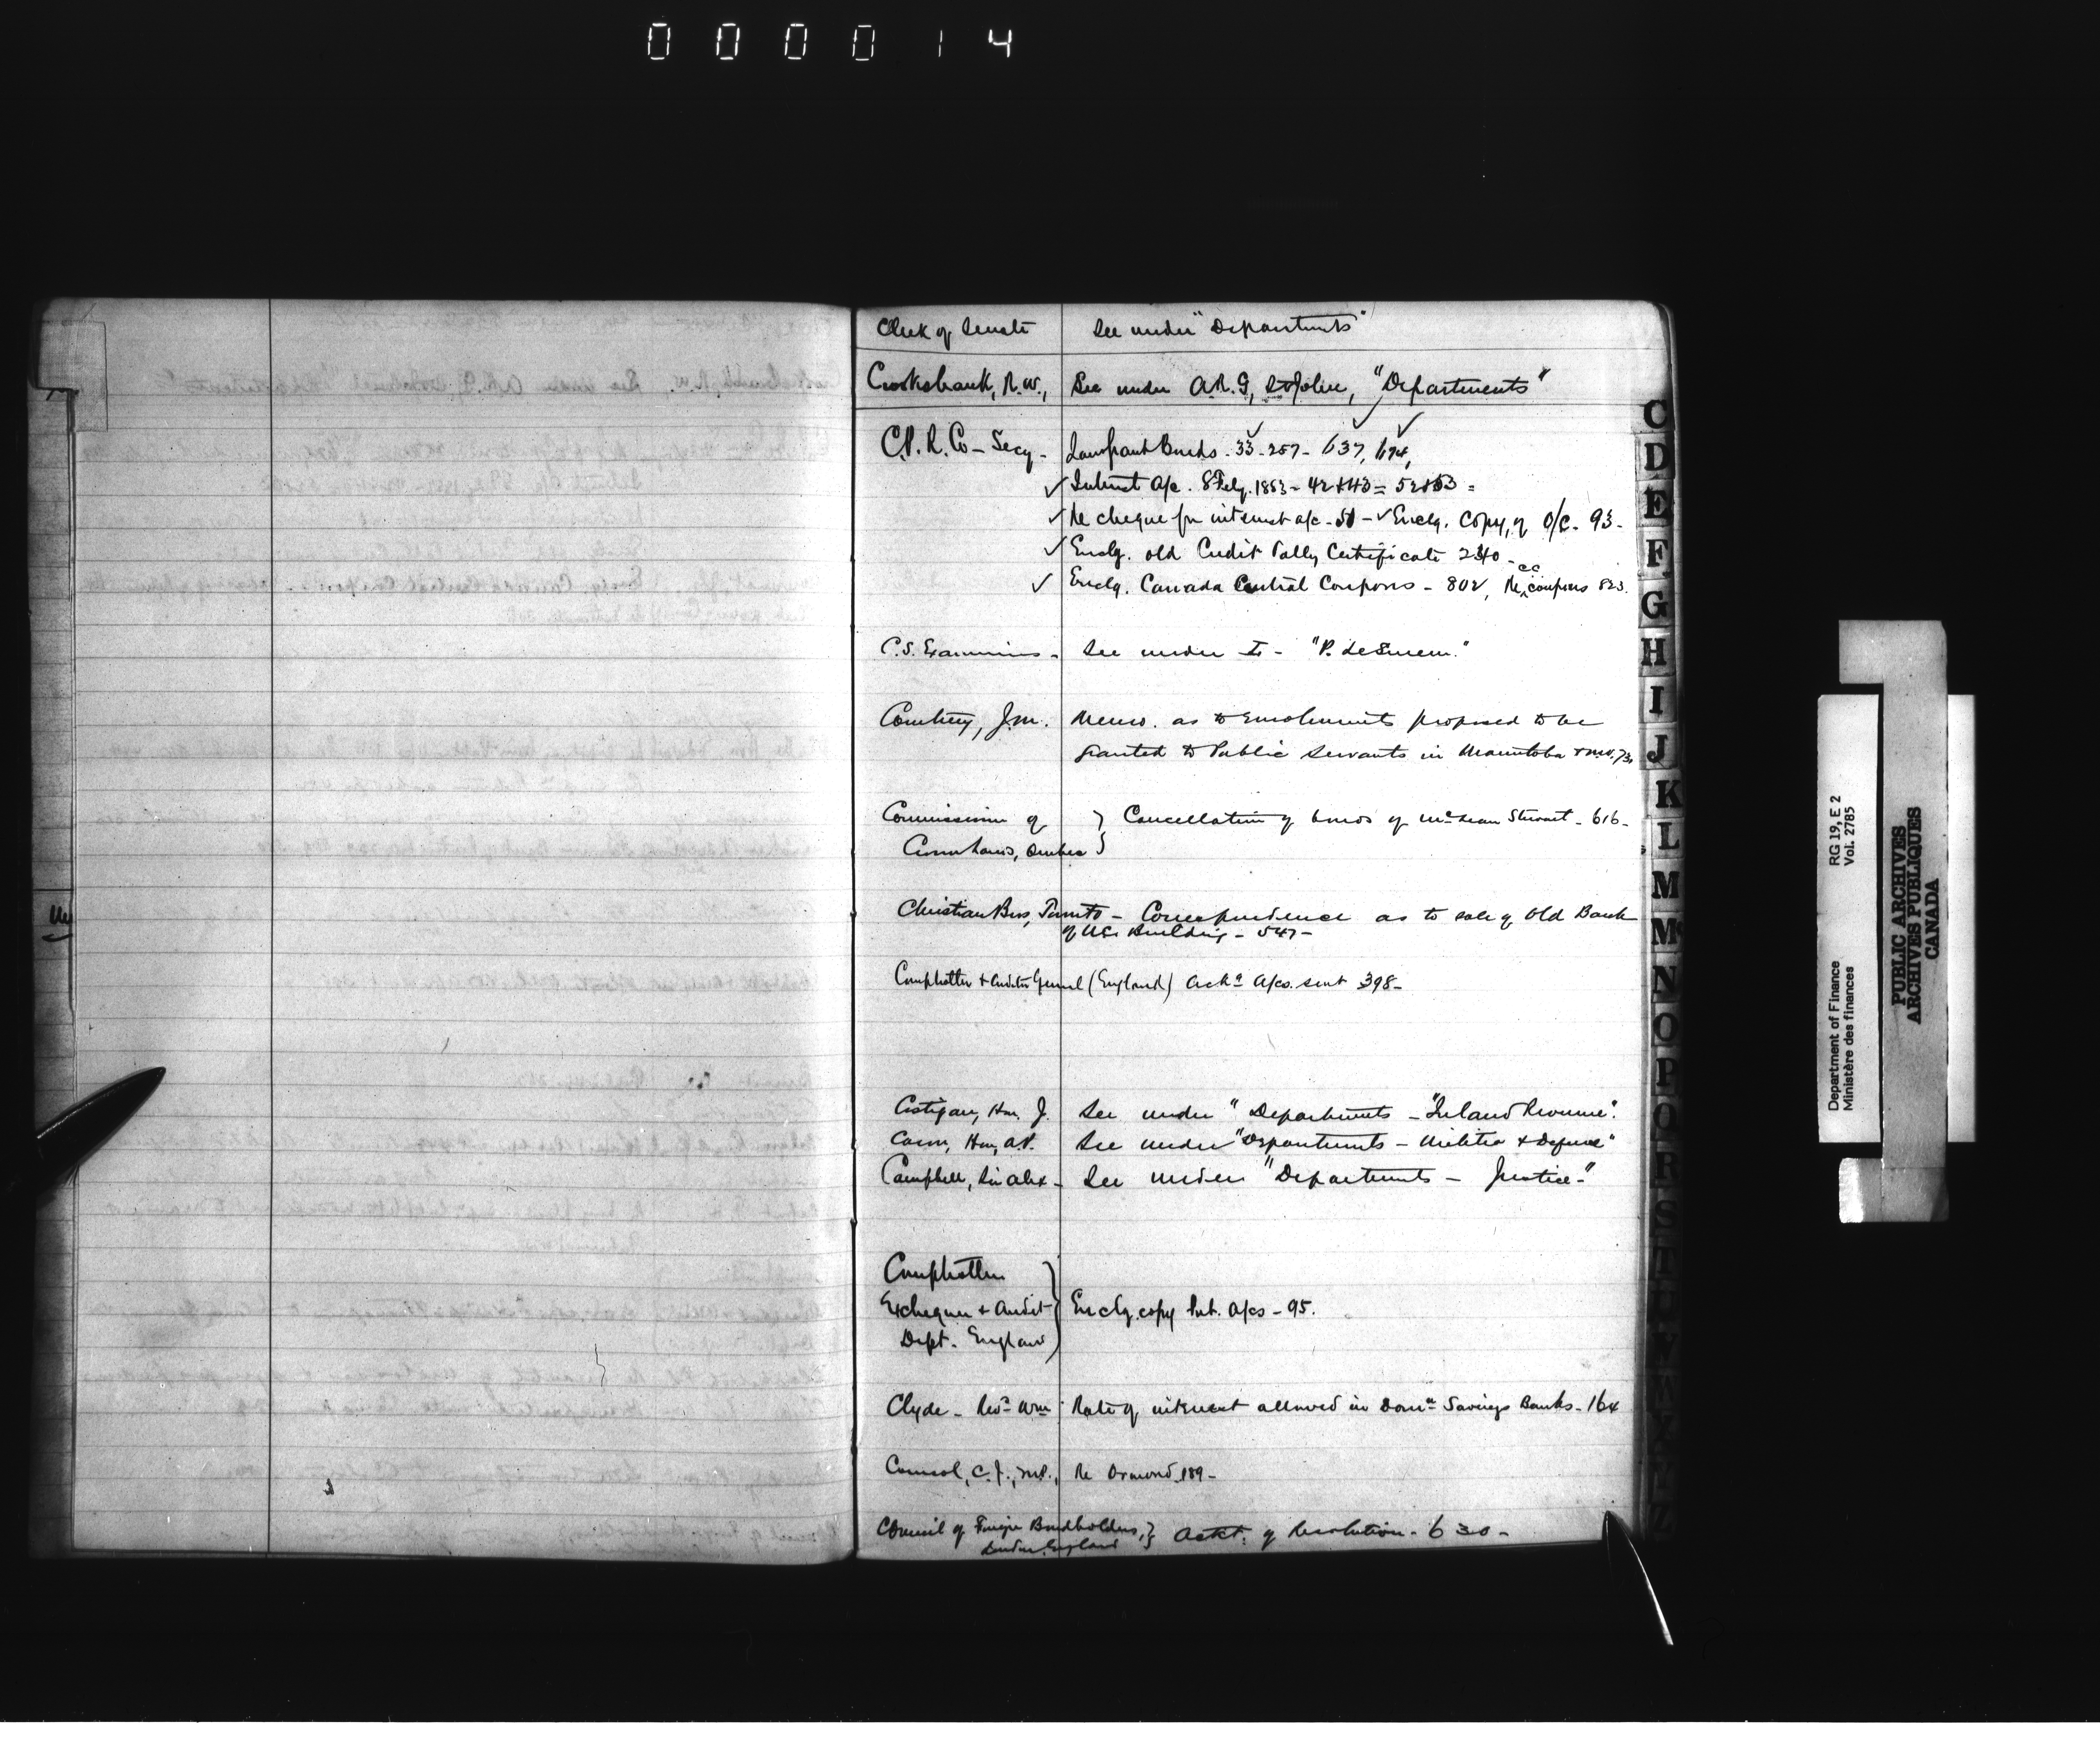 000014
Clerk of Senate See under "Departments"
Crookshank, R.W., See under A.R.G, St John, "Departments"
C.P.R. Co - Secy - Landgrant Bonds - 33 - 257 - 637, 674,
Interest a/c. 8 Feby. 1883 - 42 & 43 = 52 & 53 =
Re cheque for interest a/c - 50 - Enclg. Copy, of O/C - 93 -
Enclg. old Credit Tally Certificate 240 -
Enclg. Canada Central Coupons - 802, Re CC coupons 823.
C.S. Examiners - See under I - "P. LeSueur."
Courtney, J.M. Memo. as to Emoluments proposed to be
granted to Public Servants in Manitoba & N.W. 73.
Commission of } Cancellation of bonds of McLean Stewart - 616 -
Crown Lands, Quebec }
Christian Bros, Toronto - Correspondence as to sale of Old Bank
of U.C. Building - 547 -
Comptroller & Auditor General (England) Ackg a/cs. sent 398 -
Costigan, Hon. J. See under "Departments - "Inland Revenue".
Caron, Hon, A.P. See under "Departments - Militia & Defence"
Campbell, Sir Alex - See under "Departments - Justice -"
Comptroller
Exchequer & Audit } Enclg. copy Pub. a/cs - 95.
Dept. England
Clyde - Revd Wm Rate of interest allowed in Domn Savings Banks - 164
Coursol, C.J., M.P., Re Ormond 189 -
Council of Foreign Bondholders, } Ackt. of Resolution - 630 -
London England
C
D
E
F
G
H
I
J
K
L
M
Mc
N
O
P
Q
R
S
T
Department of Finance RG 19, E 2
Ministère des finances Vol. 2785
PUBLIC ARCHIVES
ARCHIVES PUBLIQUES
CANADA